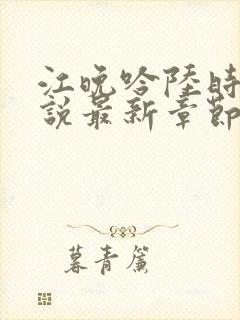 江晚吟陸時
說最新章節
暮青簾